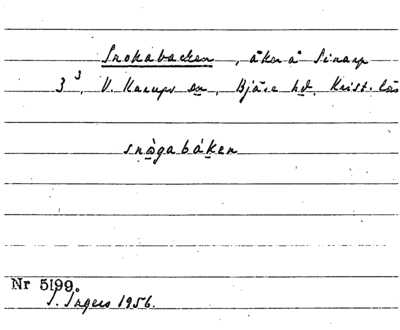 Snokabacken, åker å Sinarp
3³, V. Karups sn, Bjäre hd, Krist. län
snògabáken
Nr 5199.
I. Ingers 1956.